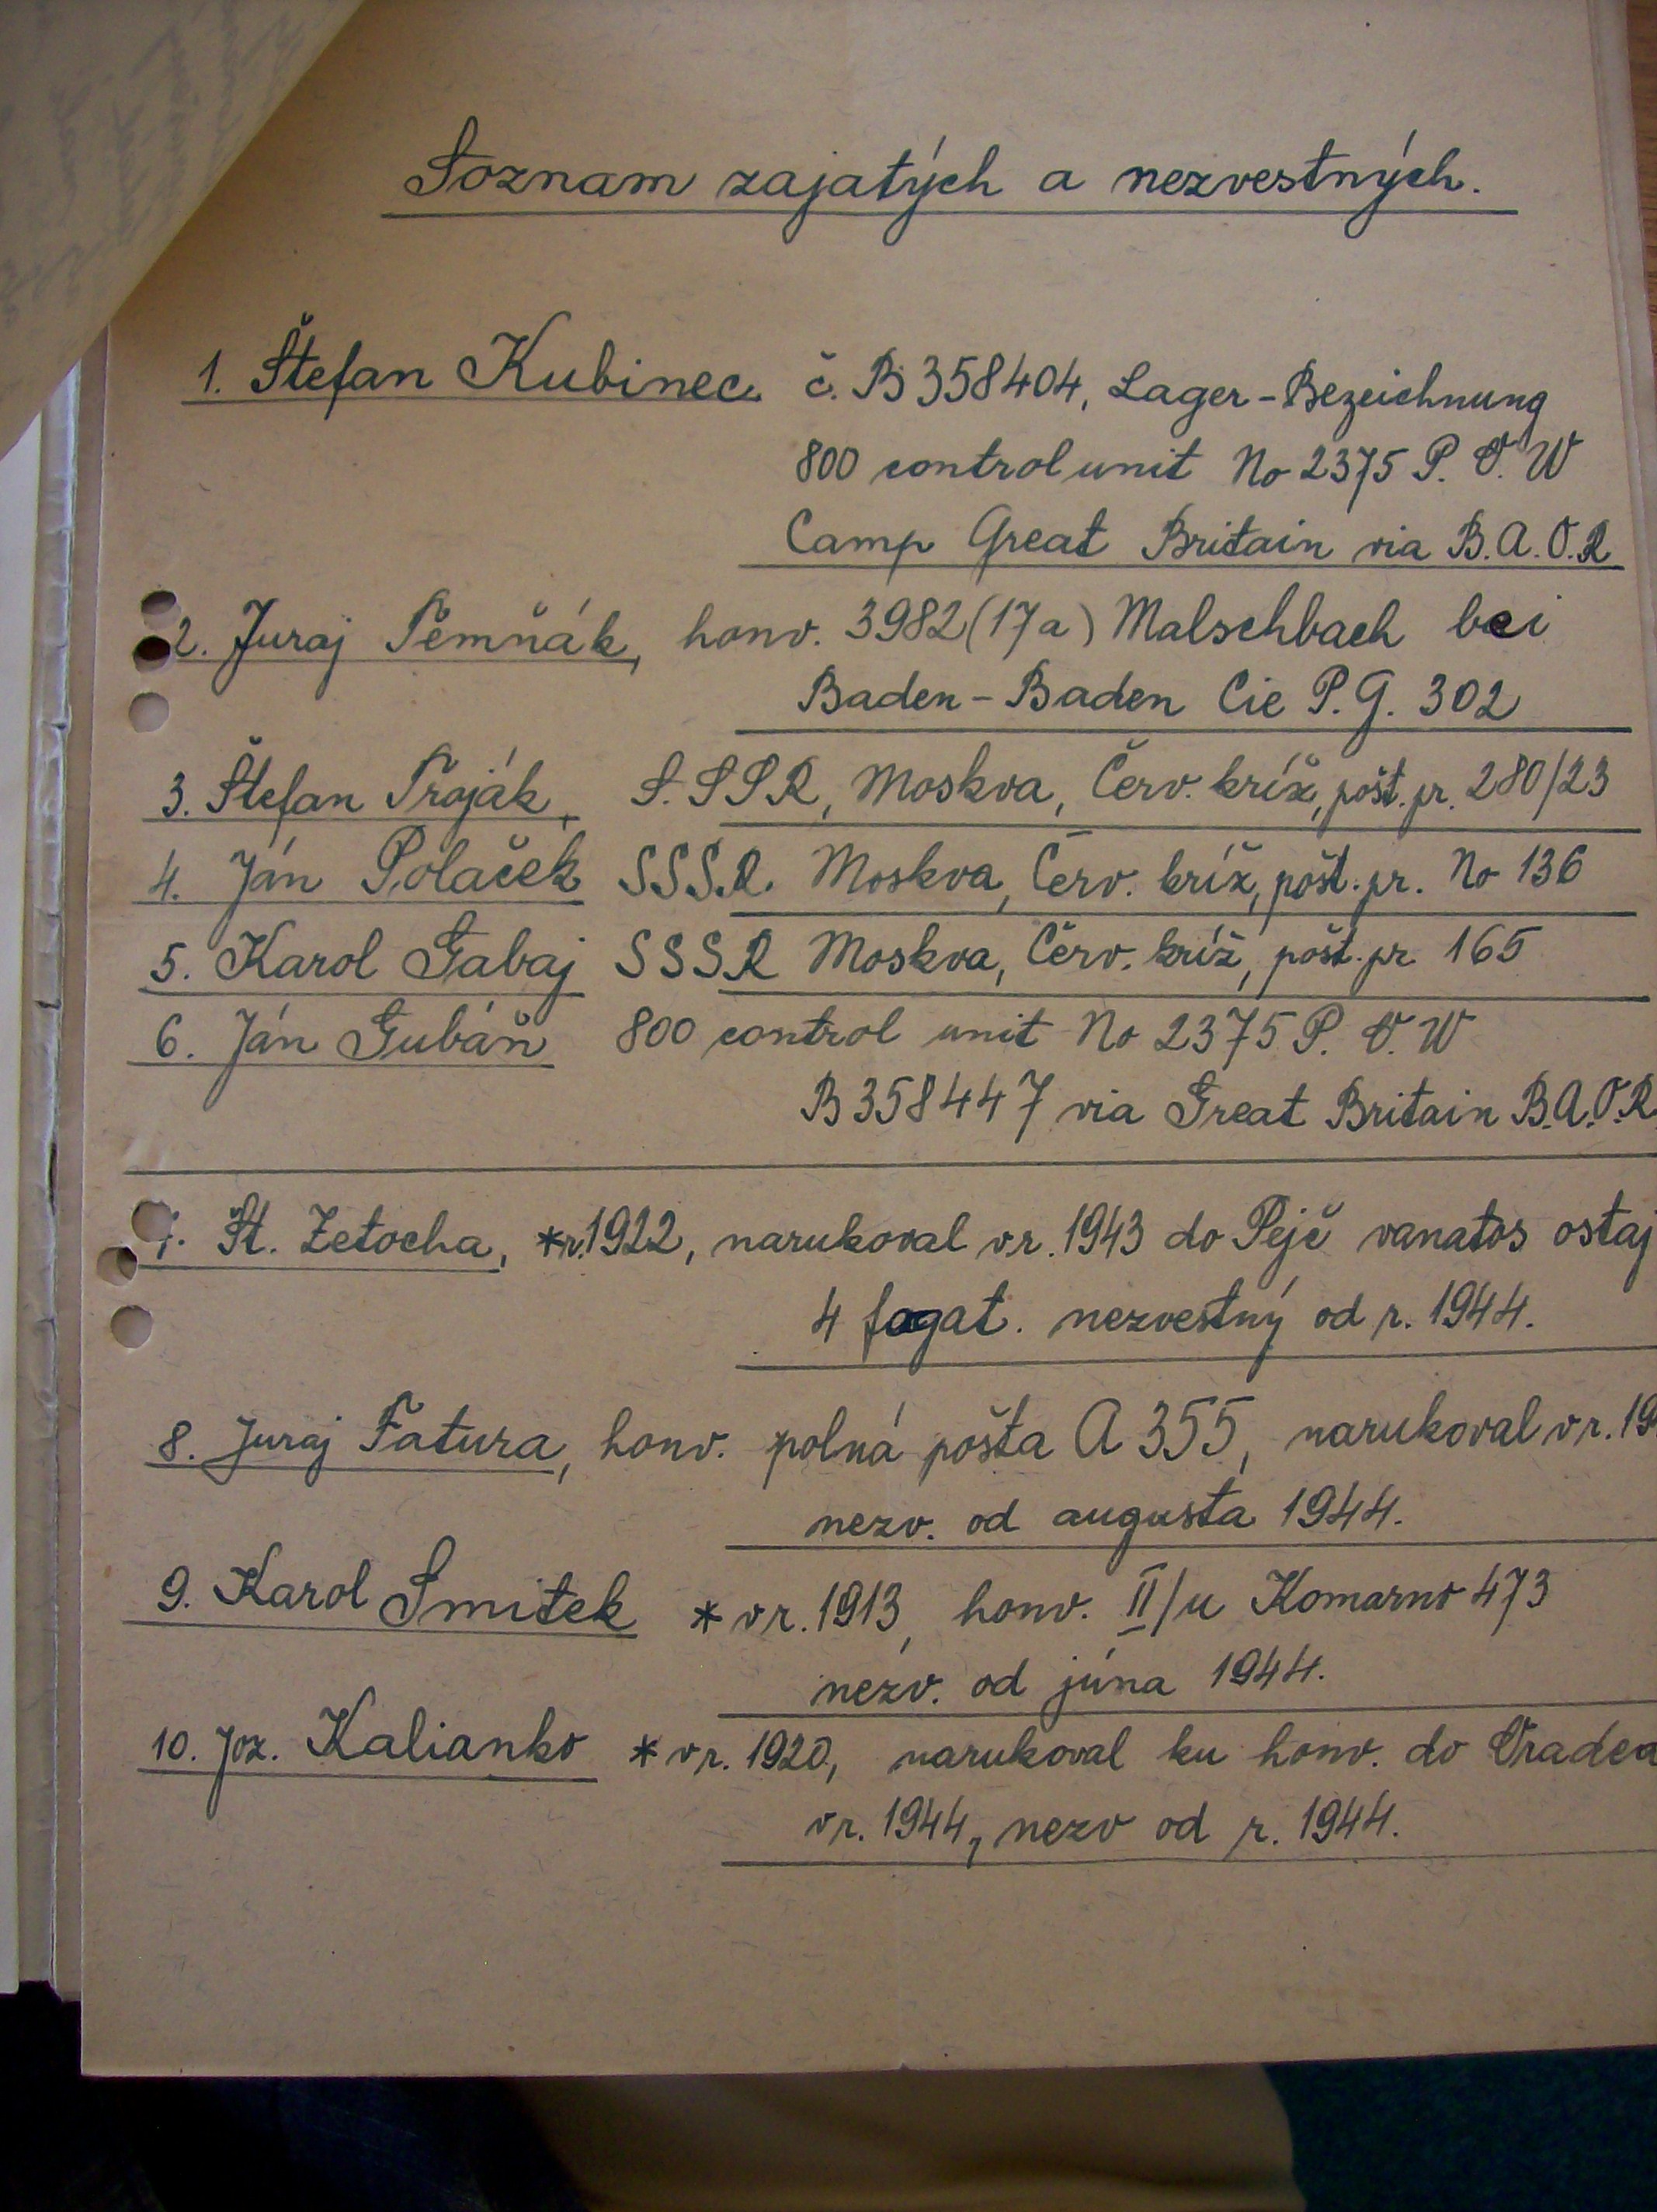 Soznam zajatých a nezvestných.
1. Štefan Kubinec č. B 358404, Lager-Bezeichnung
800 control unit No 2375 P. O. W
Camp Great Britain via B.A.O.R
2. Juraj Temňák, honv. 3982 (17a) Malschbach bei
Baden-Baden Cie P.G. 302
3. Štefan Troják, S.SSR, Moskva, Červ. kríž, pošt. pr. 280/23
4. Ján Polaček SSSR. Moskva, Červ. kríž, pošt. pr. No 136
5. Karol Gabaj SSSR Moskva, Červ. kríž, pošt. pr. 165
6. Ján Gubáň 800 control unit No 2375 P. O. W
B 358447 via Great Britain B.A.O.R
7. Št. Zetocha, *r. 1922, narukoval v r. 1943 do Pejč vanatos ostaj
4 fogat. nezvestný od r. 1944.
8. Juraj Fatura, honv. polná pošta A 355, narukoval v r. 19
nezv. od augusta 1944.
9. Karol Smitek * v r. 1913, honv. II/u Komarno 473
nezv. od júna 1944.
10. Joz. Kalianko * v r. 1920, narukoval ku honv. do Oradea
v r. 1944, nezv od r. 1944.